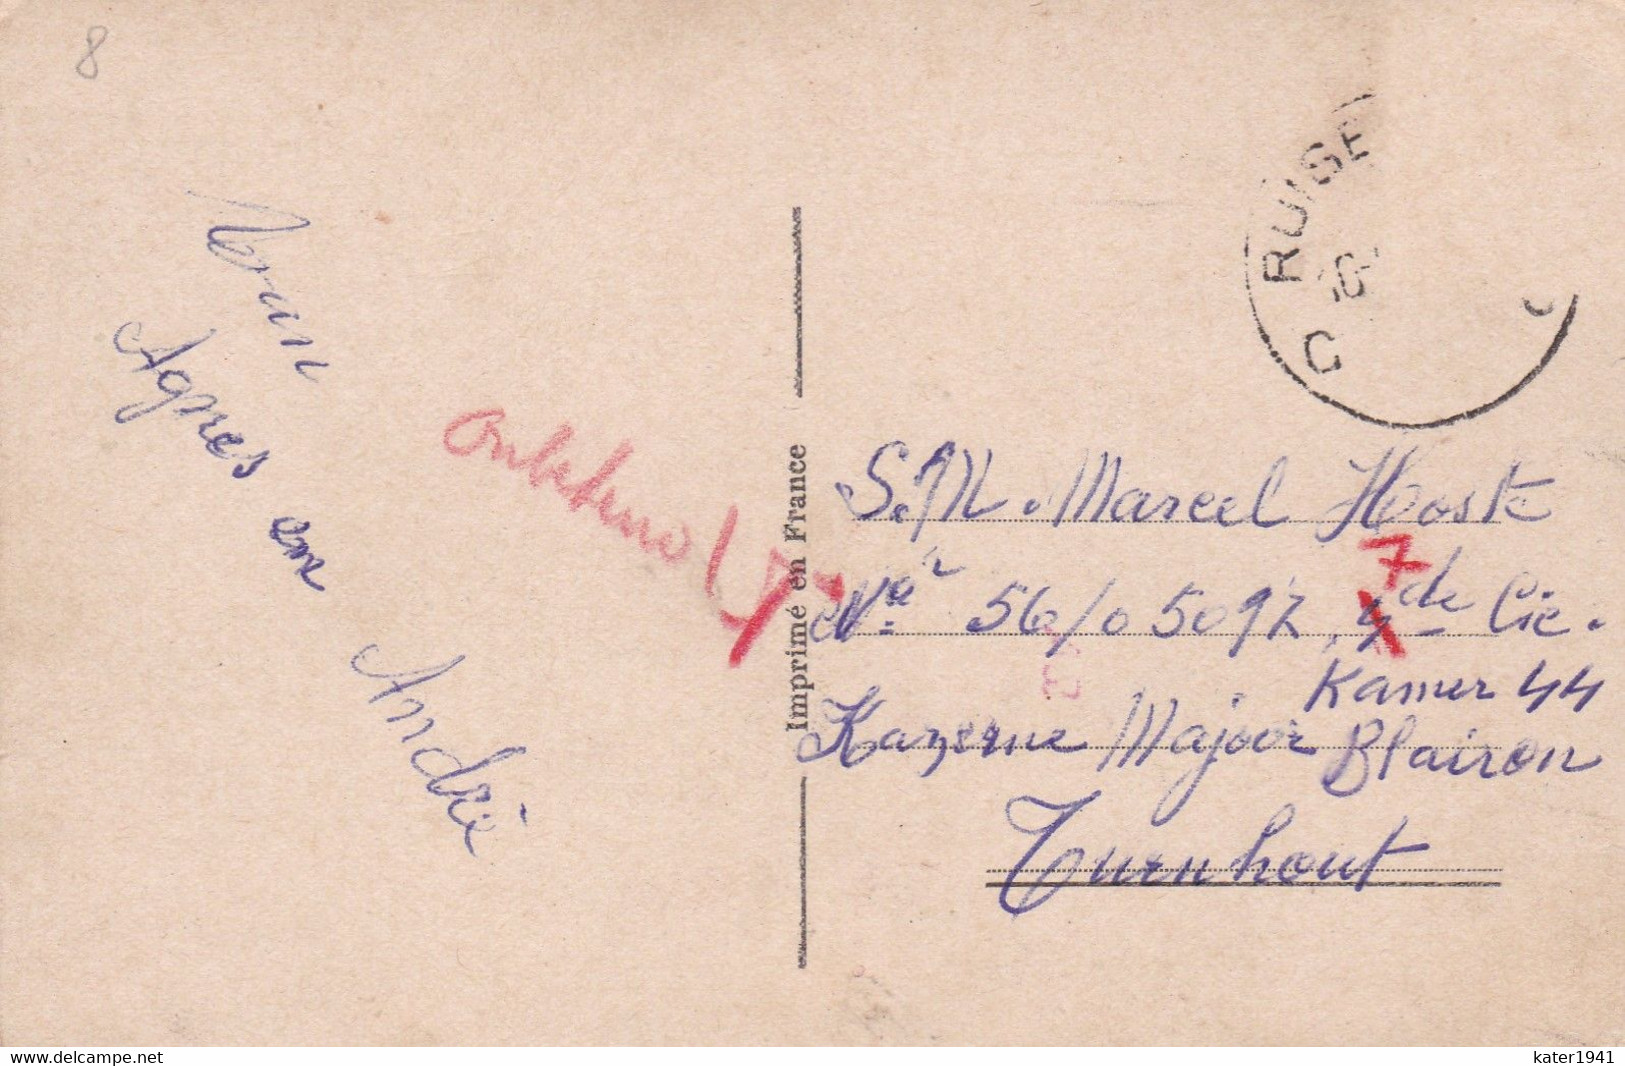 8
Agnes en André
Imprimé en France
C RUISE
S.M. Marcel Hooste
56/05097, 7de Cie.
Kamer 44
Kazerne Majoor Blairon
Turnhout
www.delcampe.net
kater1941